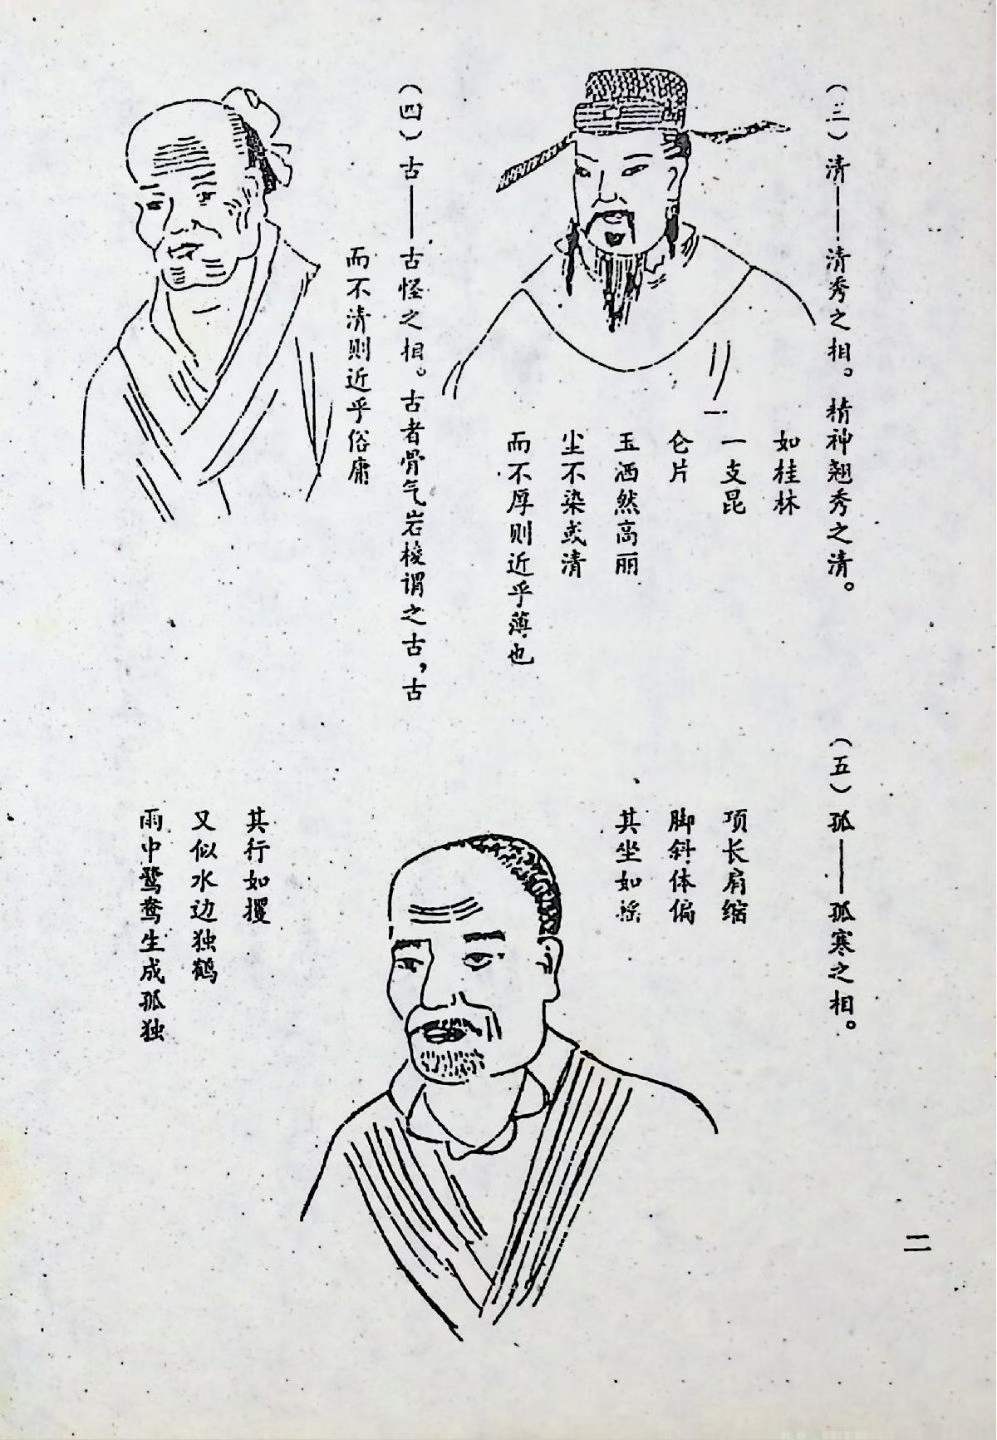 （三）清——清秀之相。精神翘秀之清。
如桂林
一支昆
仑片
玉洒然高丽
尘不染或清
而不厚则近乎薄也
（四）古——古怪之相。古者骨气岩棱谓之古，古
而不清则近乎俗庸
（五）孤——孤寒之相。
项长肩缩
脚斜体偏
其坐如摇
其行如攫
又似水边独鹤
雨中鹭鸶生成孤独
二